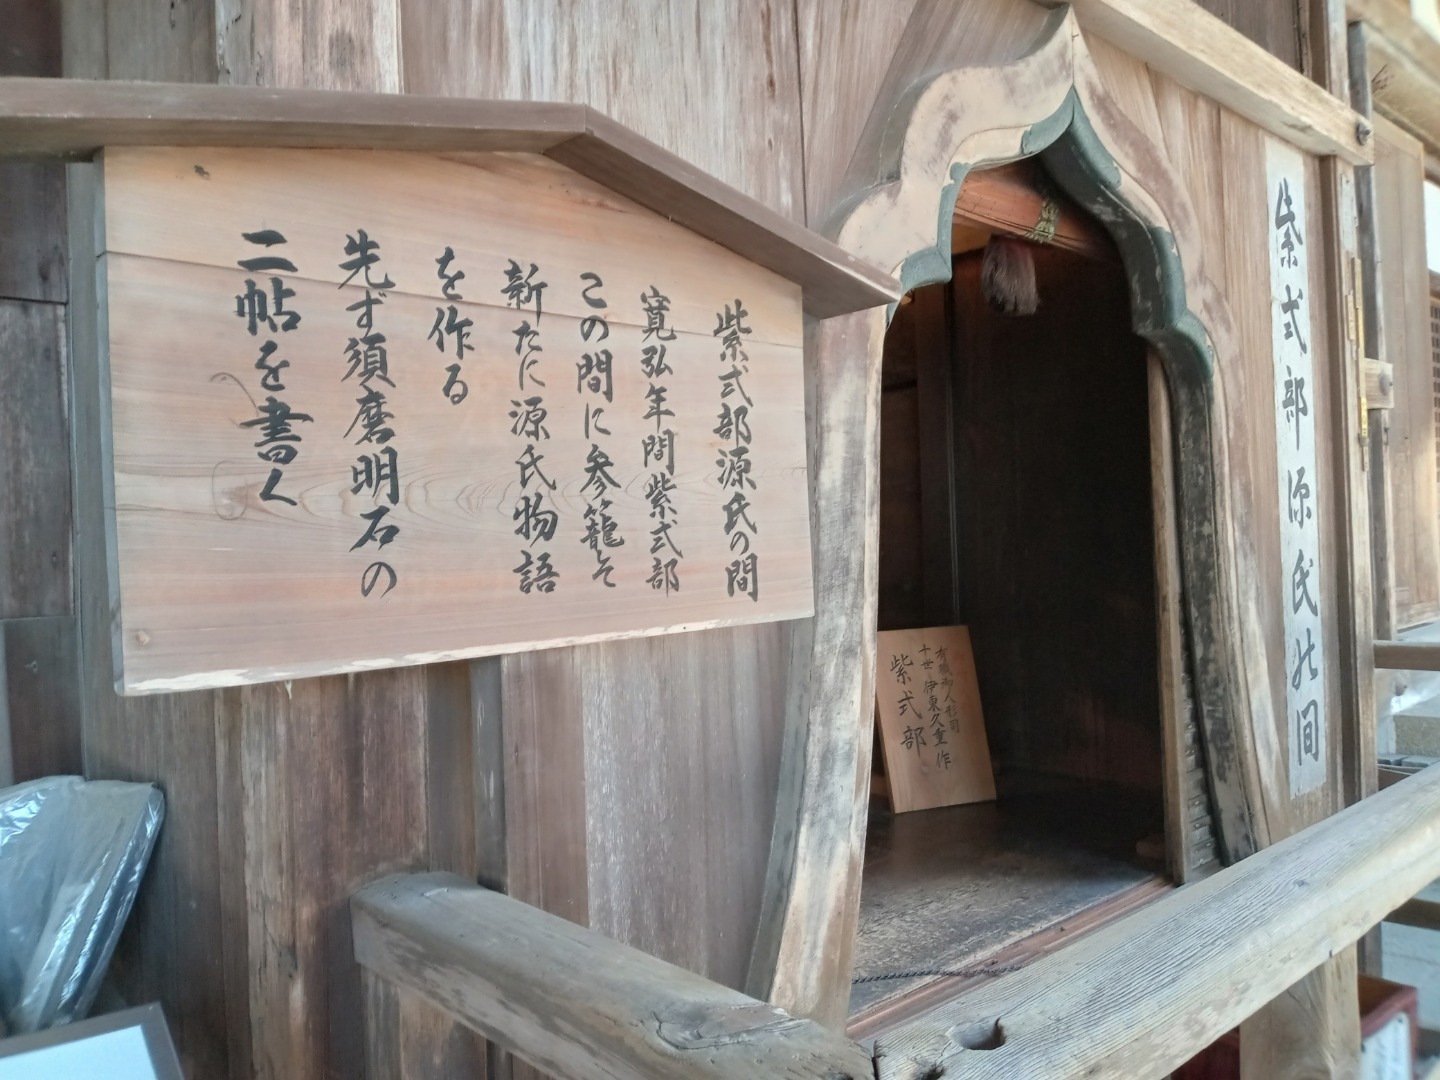 紫式部源氏の間
寛弘年間紫式部
この間に参籠そ
新たに源氏物語
を作る
先ず須磨明石の
二帖を書く
紫式部源氏の間
有職御人形司
十世伊東久重作
紫式部